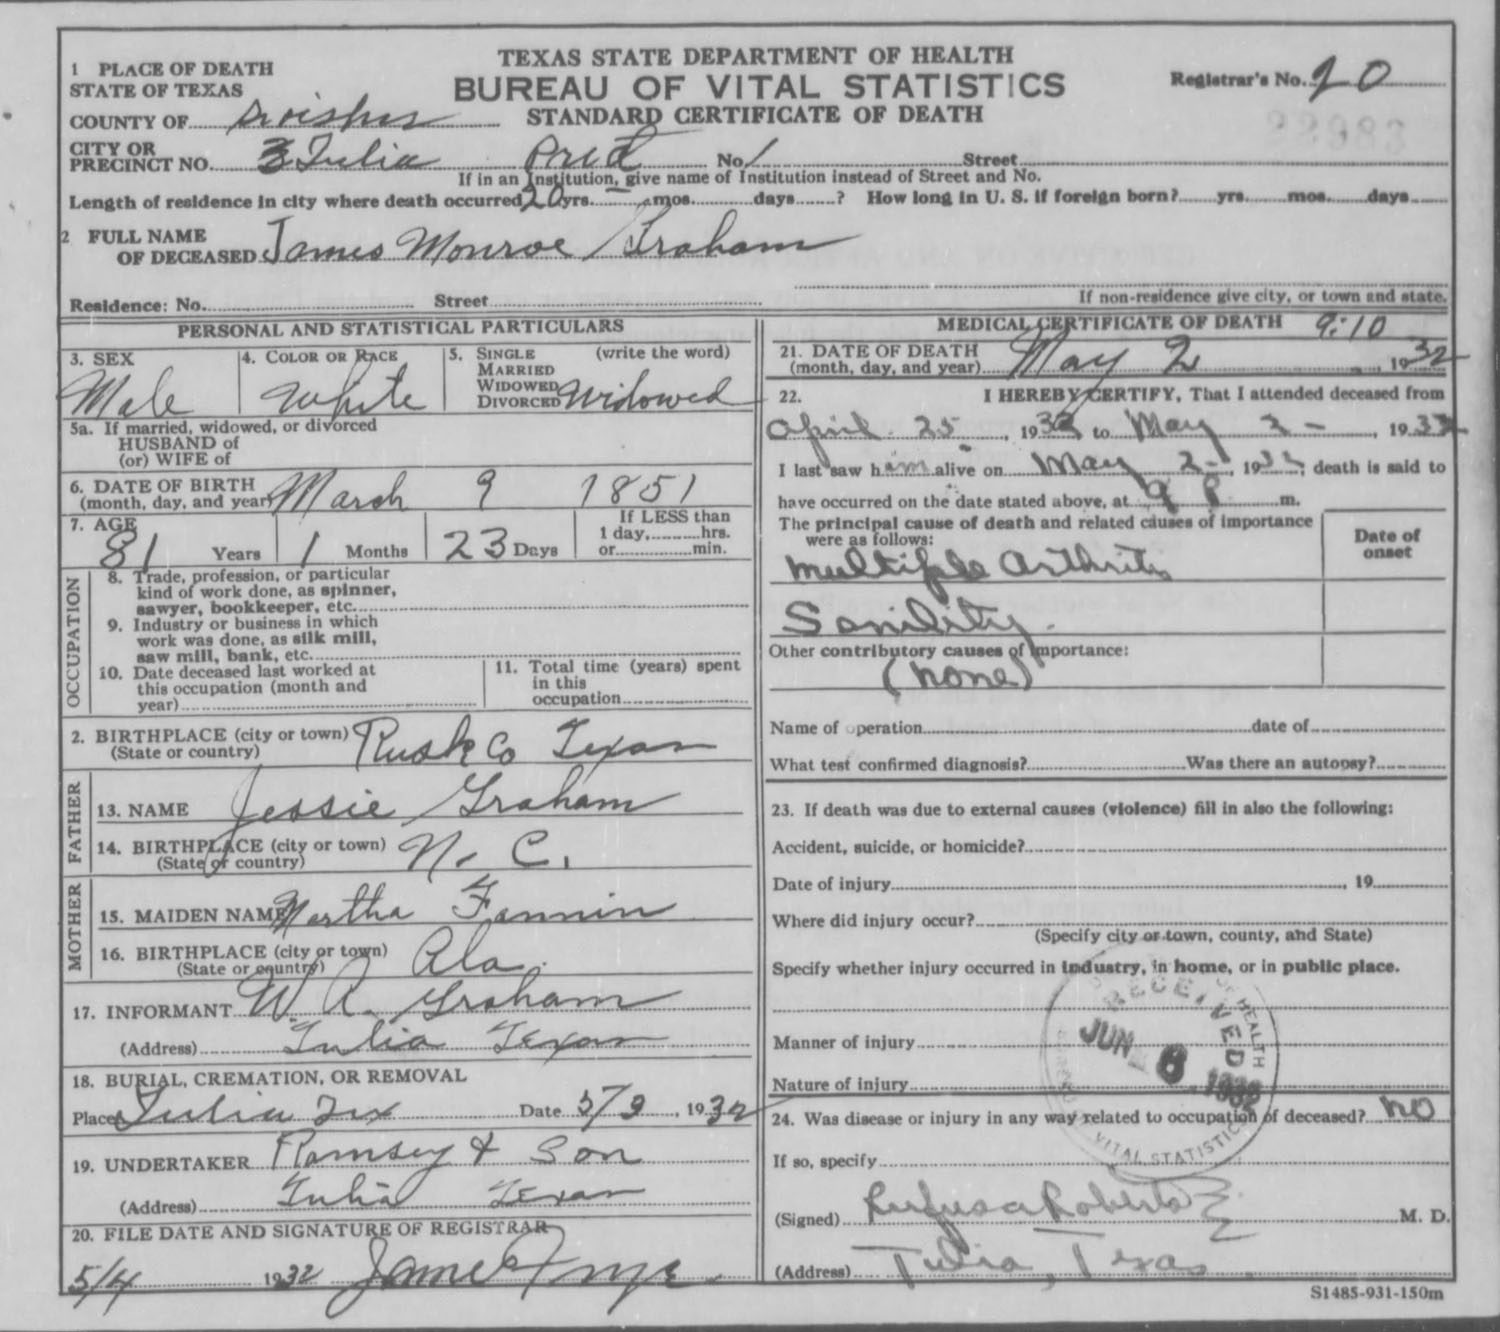 TEXAS STATE DEPARTMENT OF HEALTH
BUREAU OF VITAL STATISTICS
STANDARD CERTIFICATE OF DEATH
1 PLACE OF DEATH
STATE OF TEXAS
Registrar's No. 20
22983
COUNTY OF Swisher
CITY OR
PRECINCT NO. 3 Tulia Prect No 1 Street
If in an Institution, give name of Institution instead of Street and No.
Length of residence in city where death occurred 20 yrs. mos. days ? How long in U. S. if foreign born? yrs. mos. days
2 FULL NAME
OF DECEASED James Monroe Graham
Residence: No. Street
If non-residence give city, or town and state.
PERSONAL AND STATISTICAL PARTICULARS
3. SEX
Male
4. COLOR OR RACE
White
5. SINGLE (write the word)
MARRIED
WIDOWED
DIVORCED Widowed
5a. If married, widowed, or divorced
HUSBAND of
(or) WIFE of
6. DATE OF BIRTH
(month, day, and year) March 9 1851
7. AGE
81 Years 1 Months 23 Days
If LESS than
1 day, hrs.
or min.
OCCUPATION
8. Trade, profession, or particular
kind of work done, as spinner,
sawyer, bookkeeper, etc.
9. Industry or business in which
work was done, as silk mill,
saw mill, bank, etc.
10. Date deceased last worked at
this occupation (month and
year)
11. Total time (years) spent
in this
occupation
2. BIRTHPLACE (city or town) Rusk Co Texas
(State or country)
FATHER
13. NAME Jessie Graham
14. BIRTHPLACE (city or town) N. C.
(State or country)
MOTHER
15. MAIDEN NAME Martha Fannin
16. BIRTHPLACE (city or town) Ala.
(State or country)
17. INFORMANT W. A. Graham
(Address) Tulia Texas
18. BURIAL, CREMATION, OR REMOVAL
Place Tulia Tex Date 5/3, 1932
19. UNDERTAKER Ramsey & Son
(Address) Tulia Texas
20. FILE DATE AND SIGNATURE OF REGISTRAR
5/4 1932 James
MEDICAL CERTIFICATE OF DEATH 9:10
21. DATE OF DEATH
(month, day, and year) May 2, 1932
22. I HEREBY CERTIFY, That I attended deceased from
April 25, 1932 to May 2 -, 1932
I last saw him alive on May 2 -, 1932; death is said to
have occurred on the date stated above, at 9 P m.
The principal cause of death and related causes of importance
were as follows:
Date of
onset
Multiple Arthritis
Senility.
Other contributory causes of importance:
(none)
Name of operation date of
What test confirmed diagnosis? Was there an autopsy?
23. If death was due to external causes (violence) fill in also the following:
Accident, suicide, or homicide?
Date of injury , 19
Where did injury occur?
(Specify city or town, county, and State)
Specify whether injury occurred in industry, in home, or in public place.
Manner of injury
Nature of injury
RECEIVED
JUN 6 1932
OF HEALTH
VITAL STATISTICS
24. Was disease or injury in any way related to occupation of deceased? no
If so, specify
(Signed) Rufus A Roberts M. D.
(Address) Tulia, Texas
S1485-931-150m